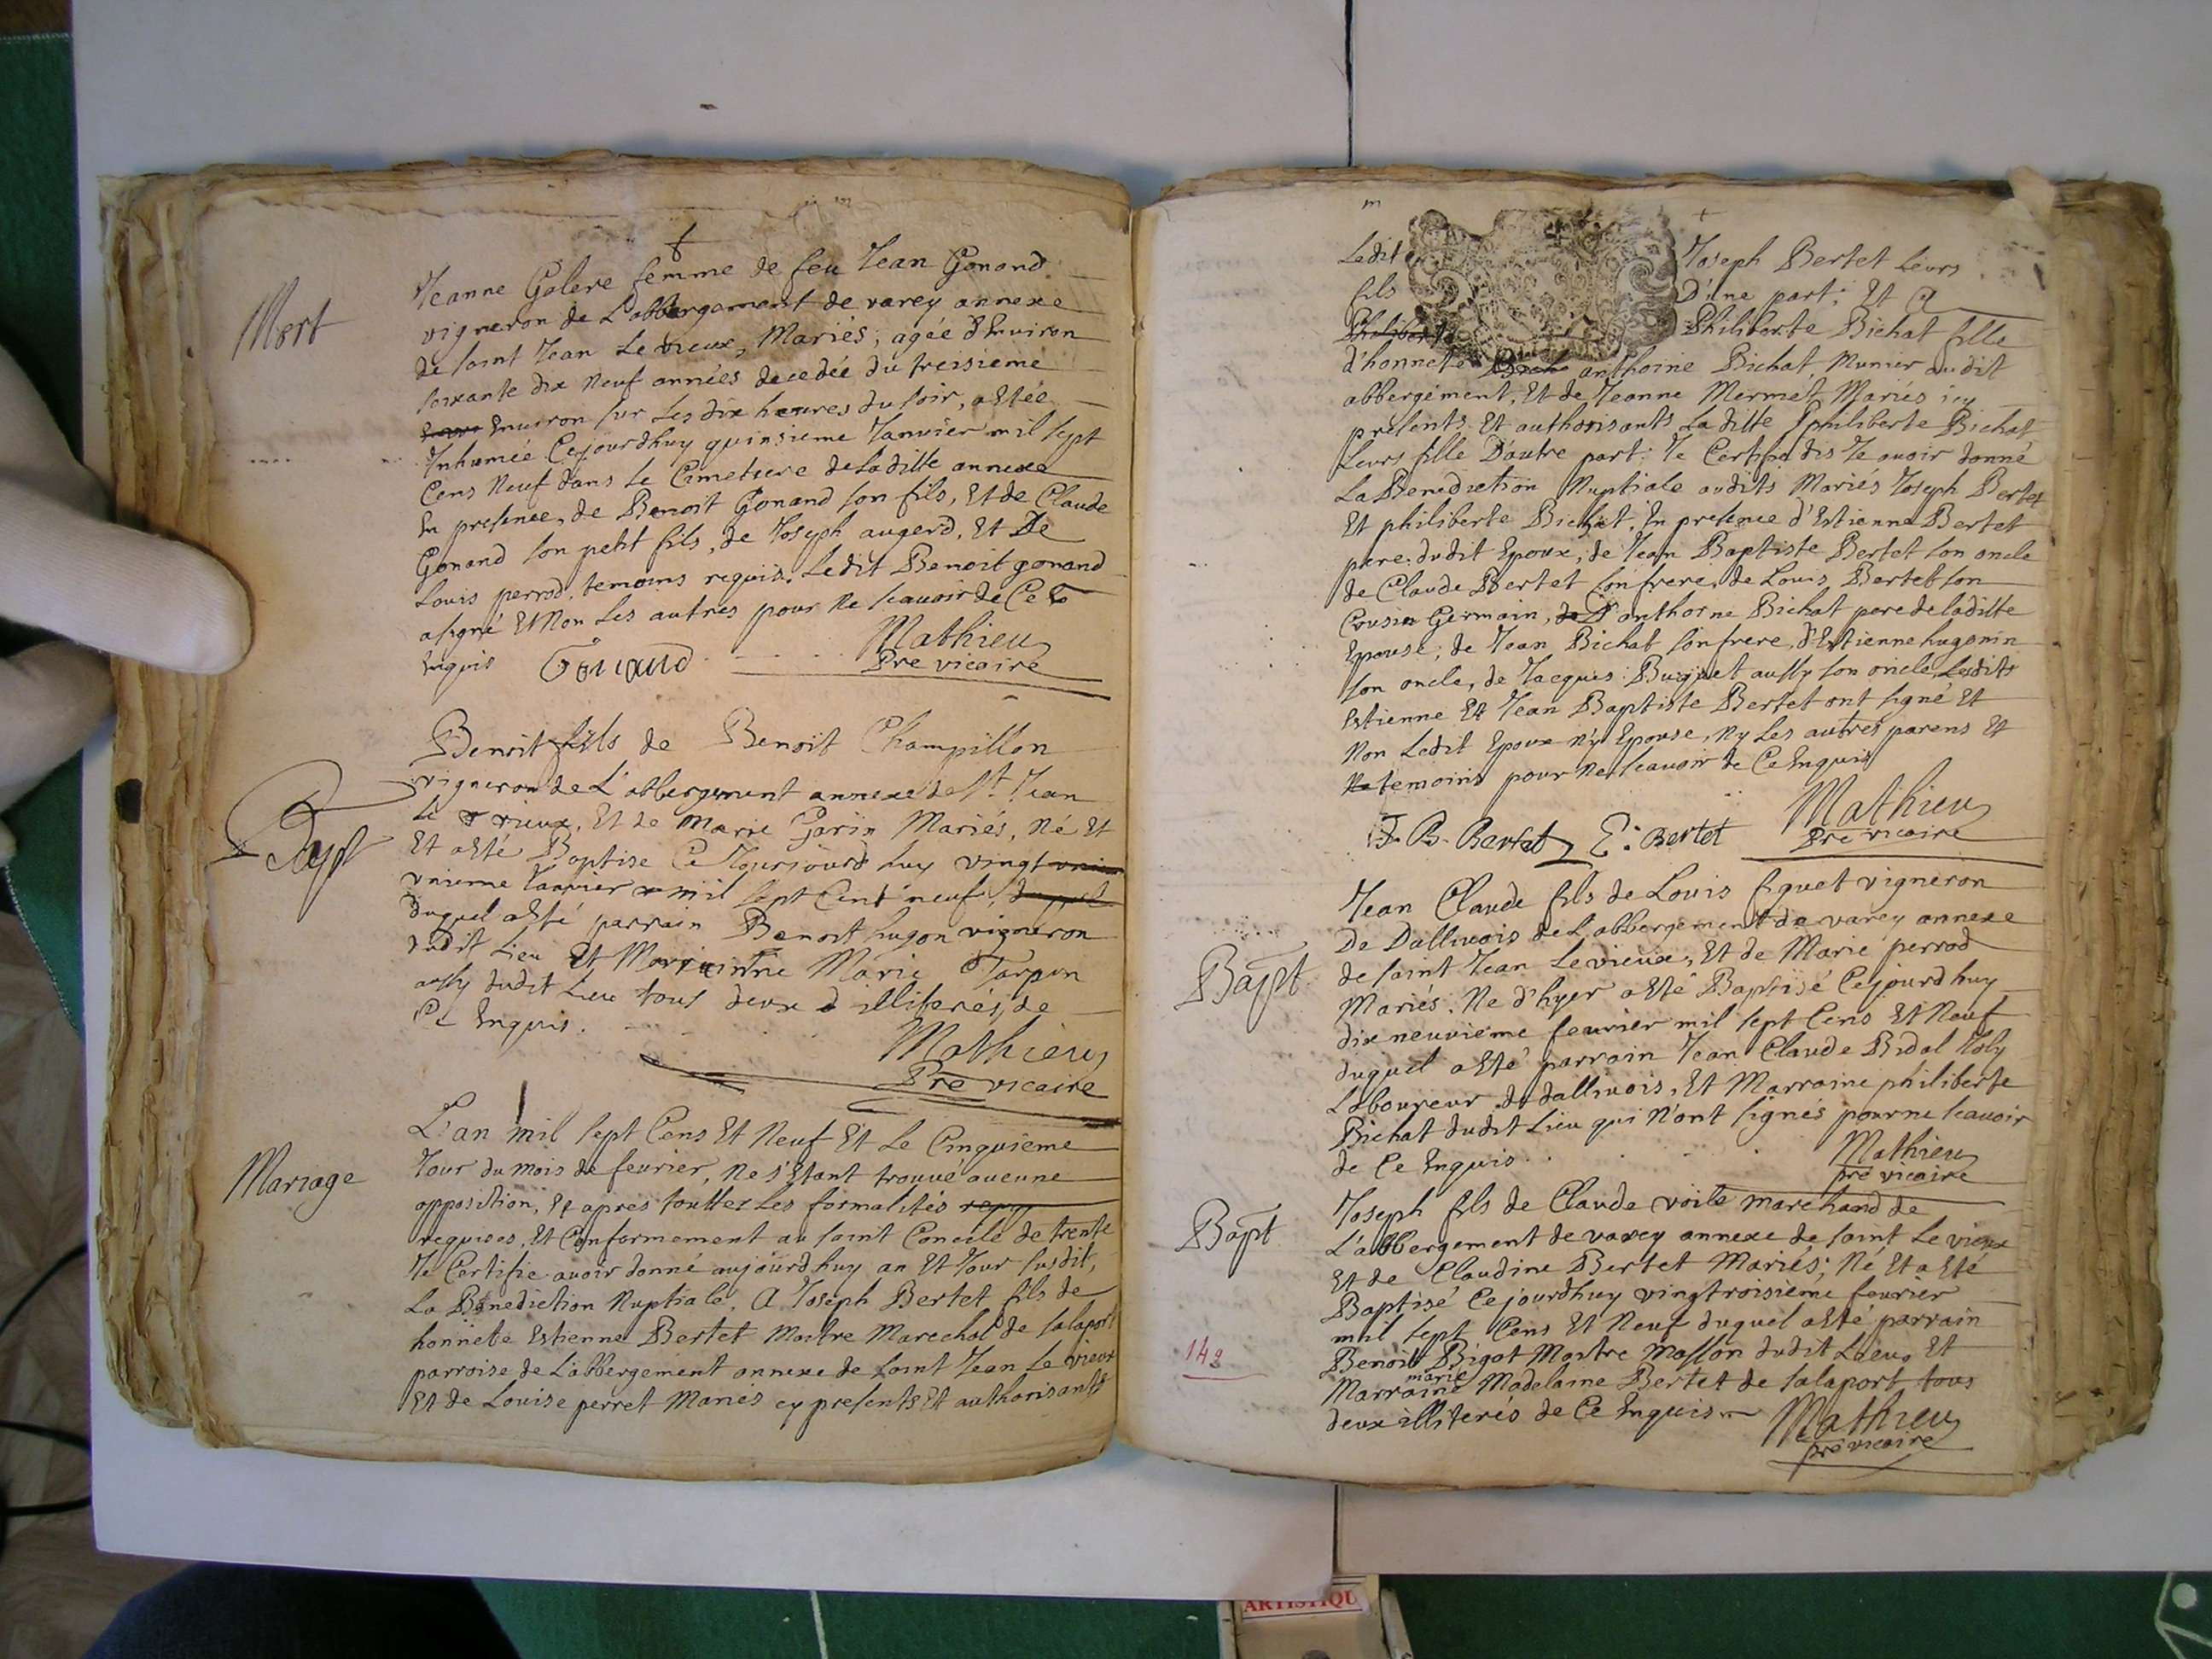 Mort
Jeanne Galere femme de feu Jean Gonand
vigneron de L'abbergement de varey annexe
de saint Jean Le vieux, Mariés, agée d'Environ
soixante dix Neuf années decedée du treisieme
Environ sur Les dix heures du soir, a Etée
Inhumée Cejourdhuy quinsieme Janvier mil sept
Cens Neuf dans Le Cimetiere de Laditte annexe
En presence, de Benoit Gonand son fils, Et de Claude
Gonand son petit fils, de Joseph augerd, Et De
Louis perrod, temoins requis, Ledit Benoit gonand
a signé Et Non Les autres pour Ne scauoir de Ce
Enquis Gonand Mathieu
Pre vicaire
Bapt
Benoit fils de Benoit Champillon
vigneron de L'abbergement annexe de St Jean
Le vieux, Et de Marie Garin Mariés, Né Et
Et a Eté Baptise Ce Jourjourd huy vingt
vnieme Janvier mil sept Cent neuf
duquel a Eté parrain Benoit hugon vigneron
dudit Lieu Et Marrainne Marie Tarpin
aussy dudit Lieu tous deux illiterés, de
Ce Enquis.
Mathieu
Pre vicaire
Mariage
L'an mil sept Cens Et Neuf Et Le Cinquieme
Jour du mois de feurier, Ne s'Etant trouué aucune
opposition, Et apres touttes Les formalités
requises, Et Conformement au saint Concile de trente
Je Certifie auoir donné aujourdhuy an Et Jour susdit,
La Benediction Nuptiale, A Joseph Bertet fils de
honnete Estienne Bertet Maitre Marechal de salaport
parroise de L'abbergement annexe de saint Jean Le vieux
Et de Louise perret Mariés cy presents Et authorisants
Ledit Joseph Bertet Leurs
fils D'une part; Et A
Philiberte Philiberte Bichat fille
d'honnete anthoine Bichat Munier dudit
abbergement, Et de Jeanne Mermet Mariés icy
presents Et authorisants La ditte Philiberte Bichat
Leurs fille D'autre part: Je Certifie dis Je auoir donné
La Benediction Nuptiale audits Mariés Joseph Bertet
Et philiberte Bichat, En presence d'Estienne Bertet
pere dudit Epoux, de Jean Baptiste Bertet son oncle
de Claude Bertet son frere, de Louis Bertet son
Cousin Germain, D'anthoine Bichat pere de laditte
Epouse, de Jean Bichat son frere, d'Estienne hugonin
son oncle, de Jacques Buquet aussy son oncle, Lesdits
Estienne Et Jean Baptiste Bertet ont signé Et
Non Ledit Epoux Ny Epouse, Ny Les autres parens Et
temoins pour Ne scauoir de Ce Enquis
J. B. Bertet E. Bertet Mathieu
Pre vicaire
Bapt
Jean Claude fils de Louis figuet vigneron
De Dalliuois de L'abbergement de varey annexe
de saint Jean Le vieux, Et de Marie perrod
Mariés. Ne d'hyer a Eté Baptisé Cejourd huy
dix neuvieme feurier mil sept Cens Et Neuf
duquel a Eté parrain Jean Claude Bidal
Laboureur de dalliuois, Et Marraine philiberte
Bichat dudit Lieu qui N'ont signés pour ne scauoir
de Ce Enquis
Mathieu
pre vicaire
Bapt
Joseph fils de Claude voile marchand de
L'abbergement de varey annexe de saint Le vieux
Et de Claudine Bertet Mariés; Né Et a Eté
Baptisé Cejourdhuy vingtroisieme feurier
mil sept Cens Et Neuf duquel a Eté parrain
Benoit Bigot Maitre Masson dudit Lieu, Et
Marraine marie Madelaine Bertet de salaport tous
deux illiterés de Ce Enquis
Mathieu
pre vicaire
142
ARTISTIQU